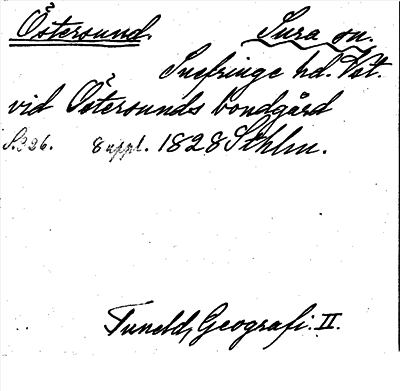 Östersund. Sura sn.
Snefringe hd. Vst.
vid Östersunds bondgård
S. 326. 8 uppl. 1828 Sthlm.
Tuneld, Geografi. II.